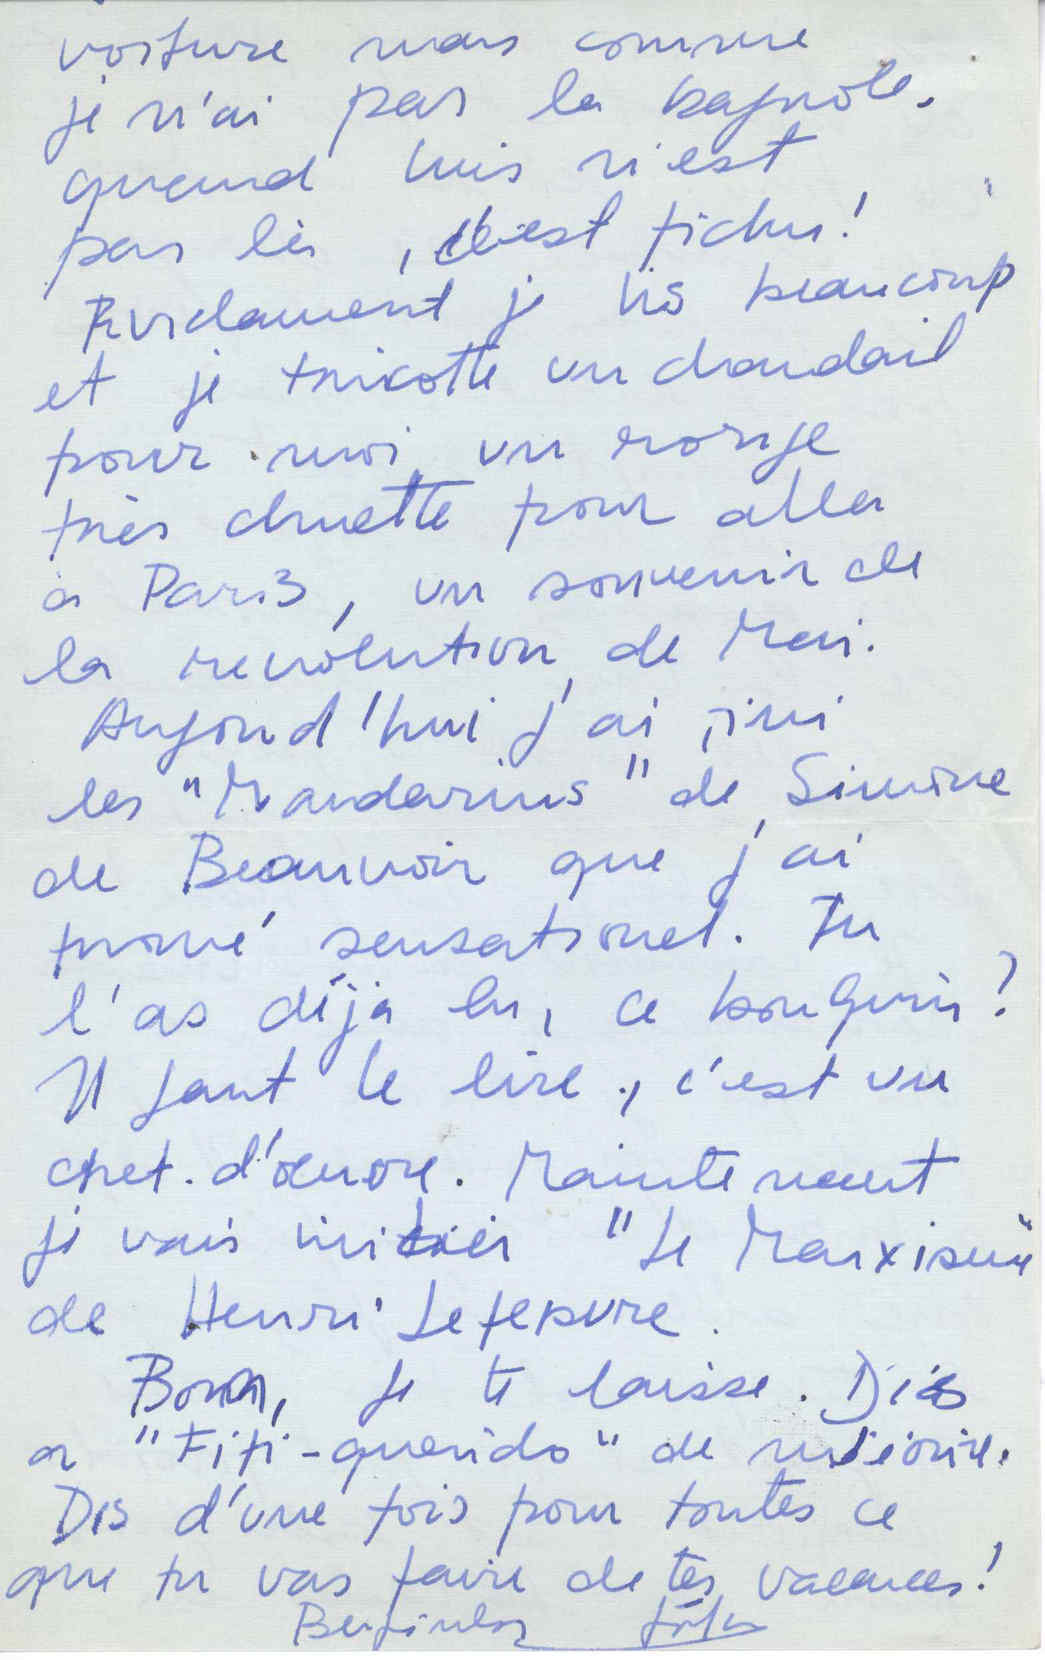 voiture mais comme
je n'ai pas la bagnole.
quand Luis n'est
pas là, c'est fichu!
Evidament je lis beaucoup
et je tricotte un chandail
pour moi, un rouge
très chuette pour aller
à Paris, un souvenir de
la revolution de Mai.
Aujourd'hui j'ai fini
les "Mandarins" de Simone
de Beauvoir que j'ai
trouvé sensationel. Tu
l'as déja lu, ce bouquin?
Il faut le lire, c'est un
chef-d'œuvre. Maintenant
je vais initier "Le Marxisme"
de Henri Lefebvre.
Bon, je te laisse. Dis
a "Fifi-querido" de m'écrire.
Dis d'une fois pour toutes ce
que tu vas faire de tes vacances!